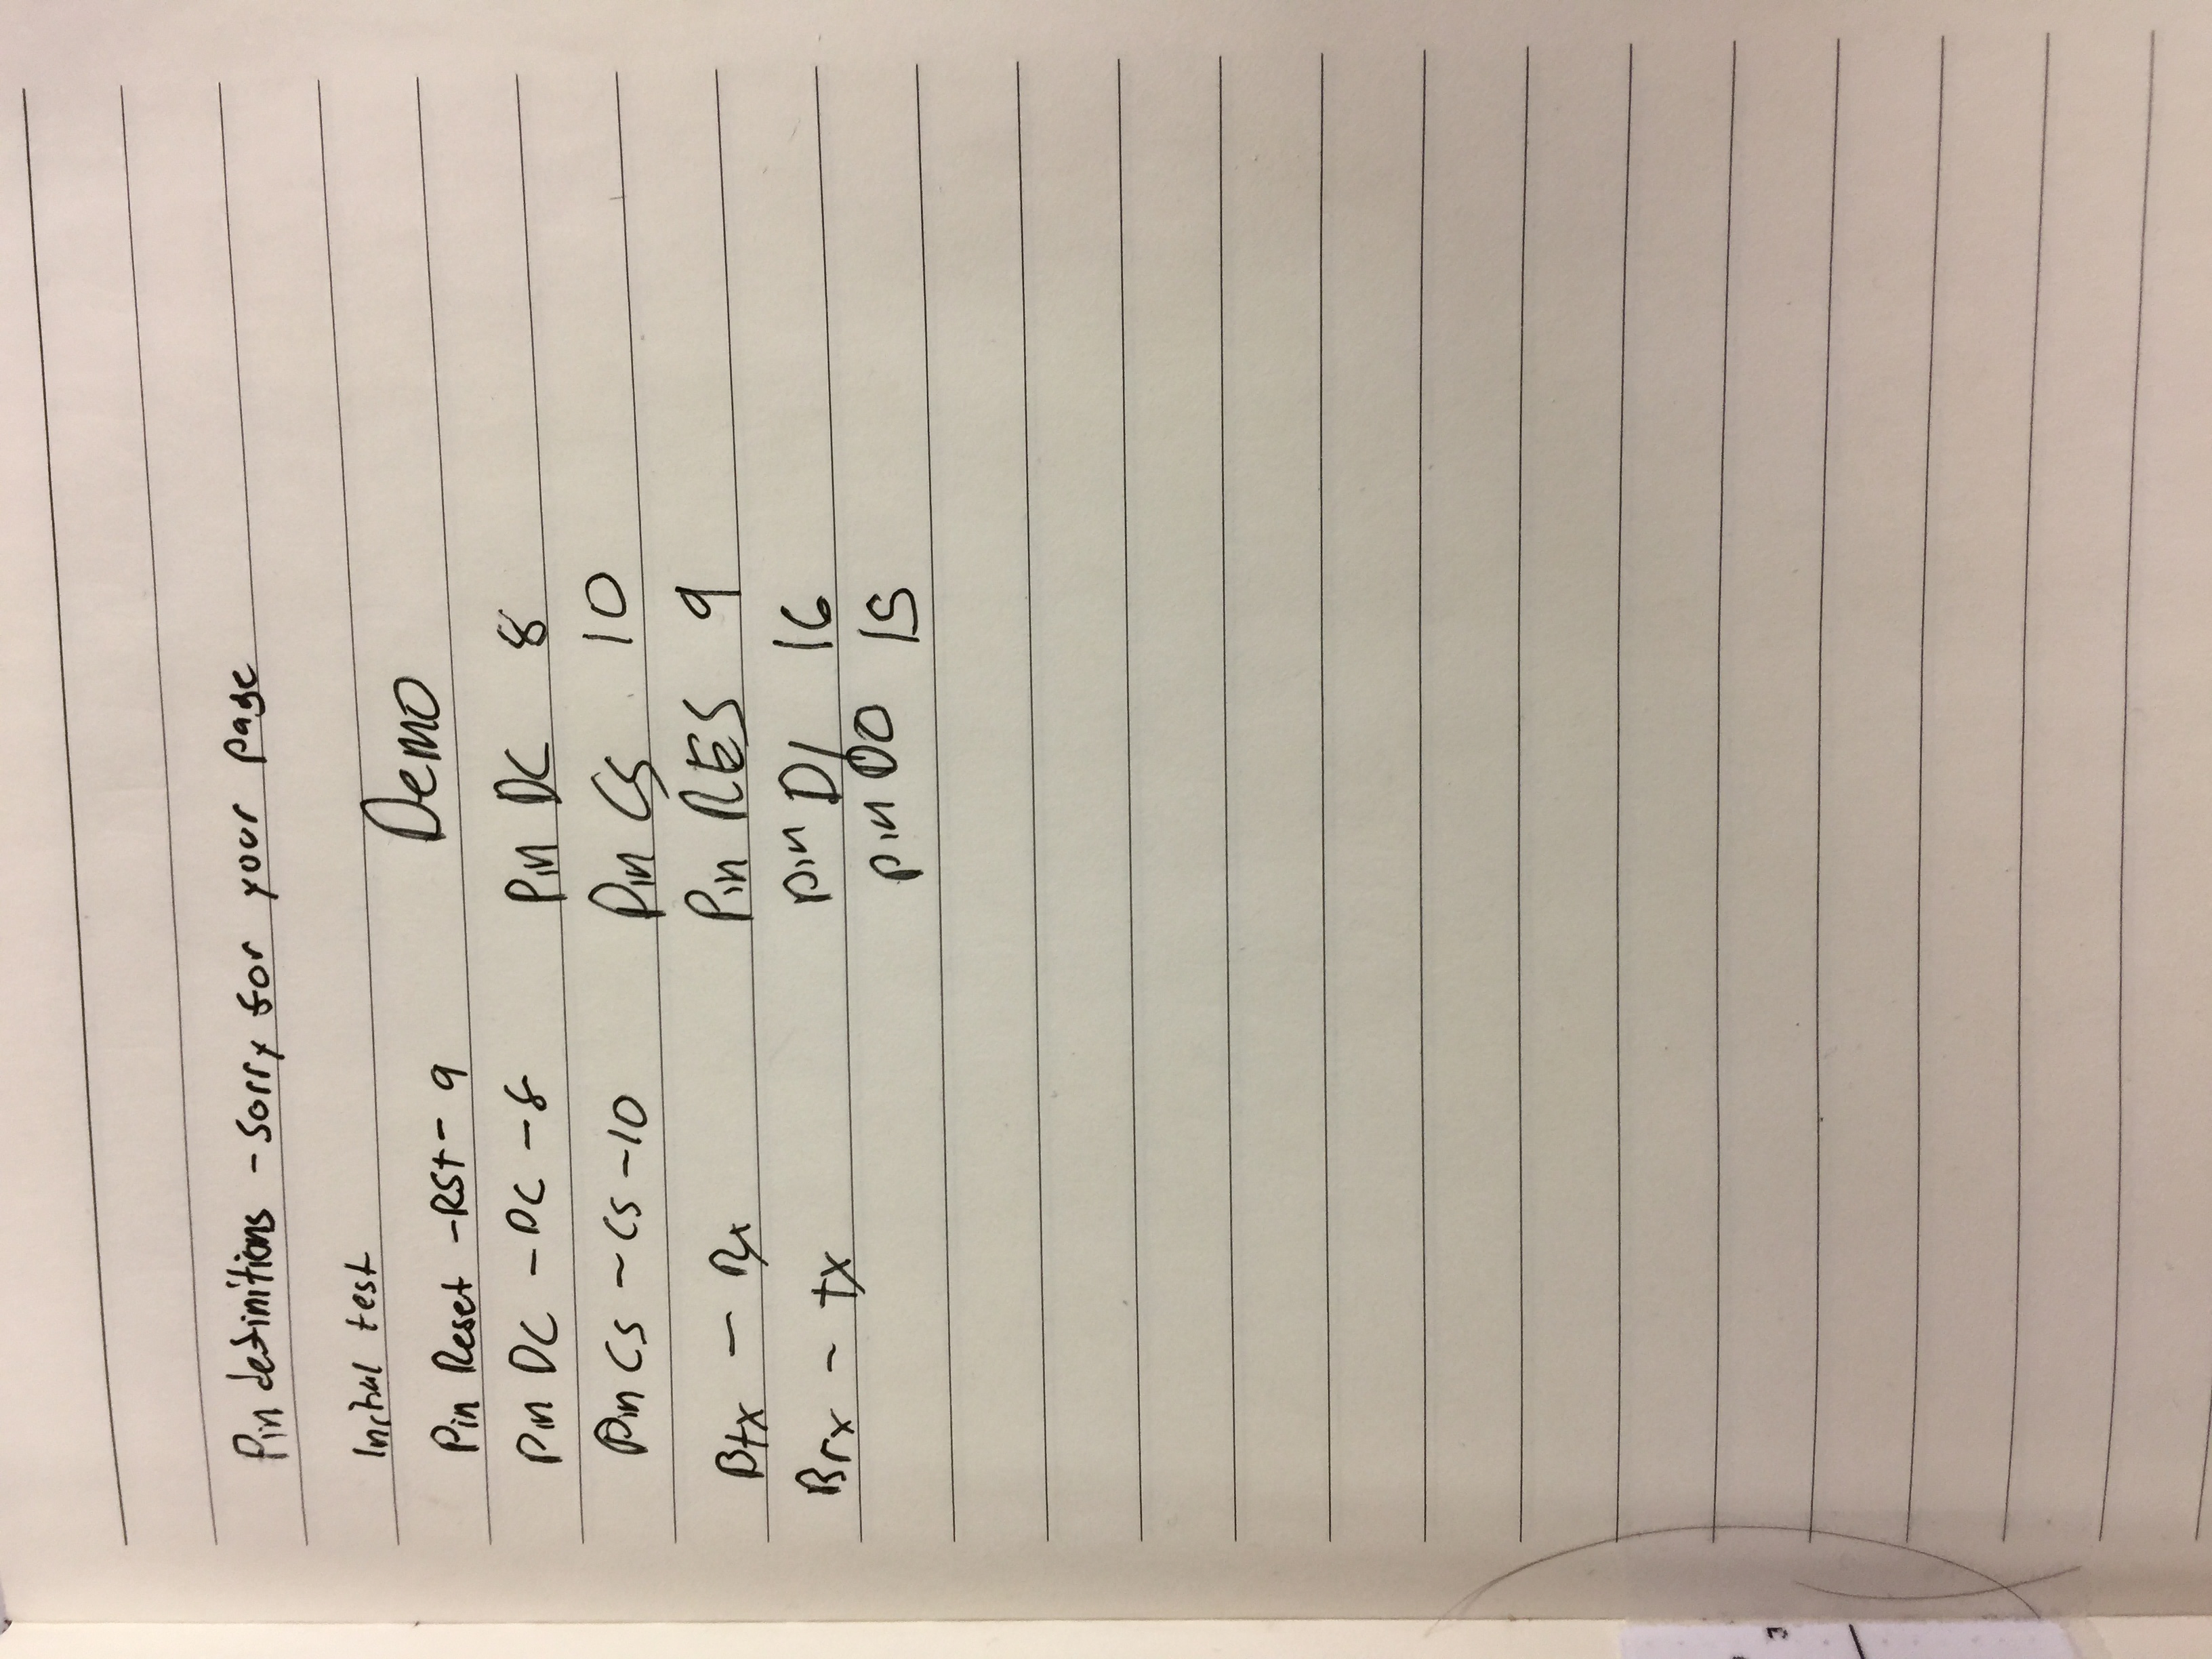 Pin definitions - sorry for your page
Initial test
Pin Reset - RST - 9
Pin DC - DC - 8
Pin CS ~ CS ~ 10
Btx - Rx
Brx ~ tx
Demo
Pin DC 8
Pin CS 10
Pin RES 9
pin DI 16
pin DO 15